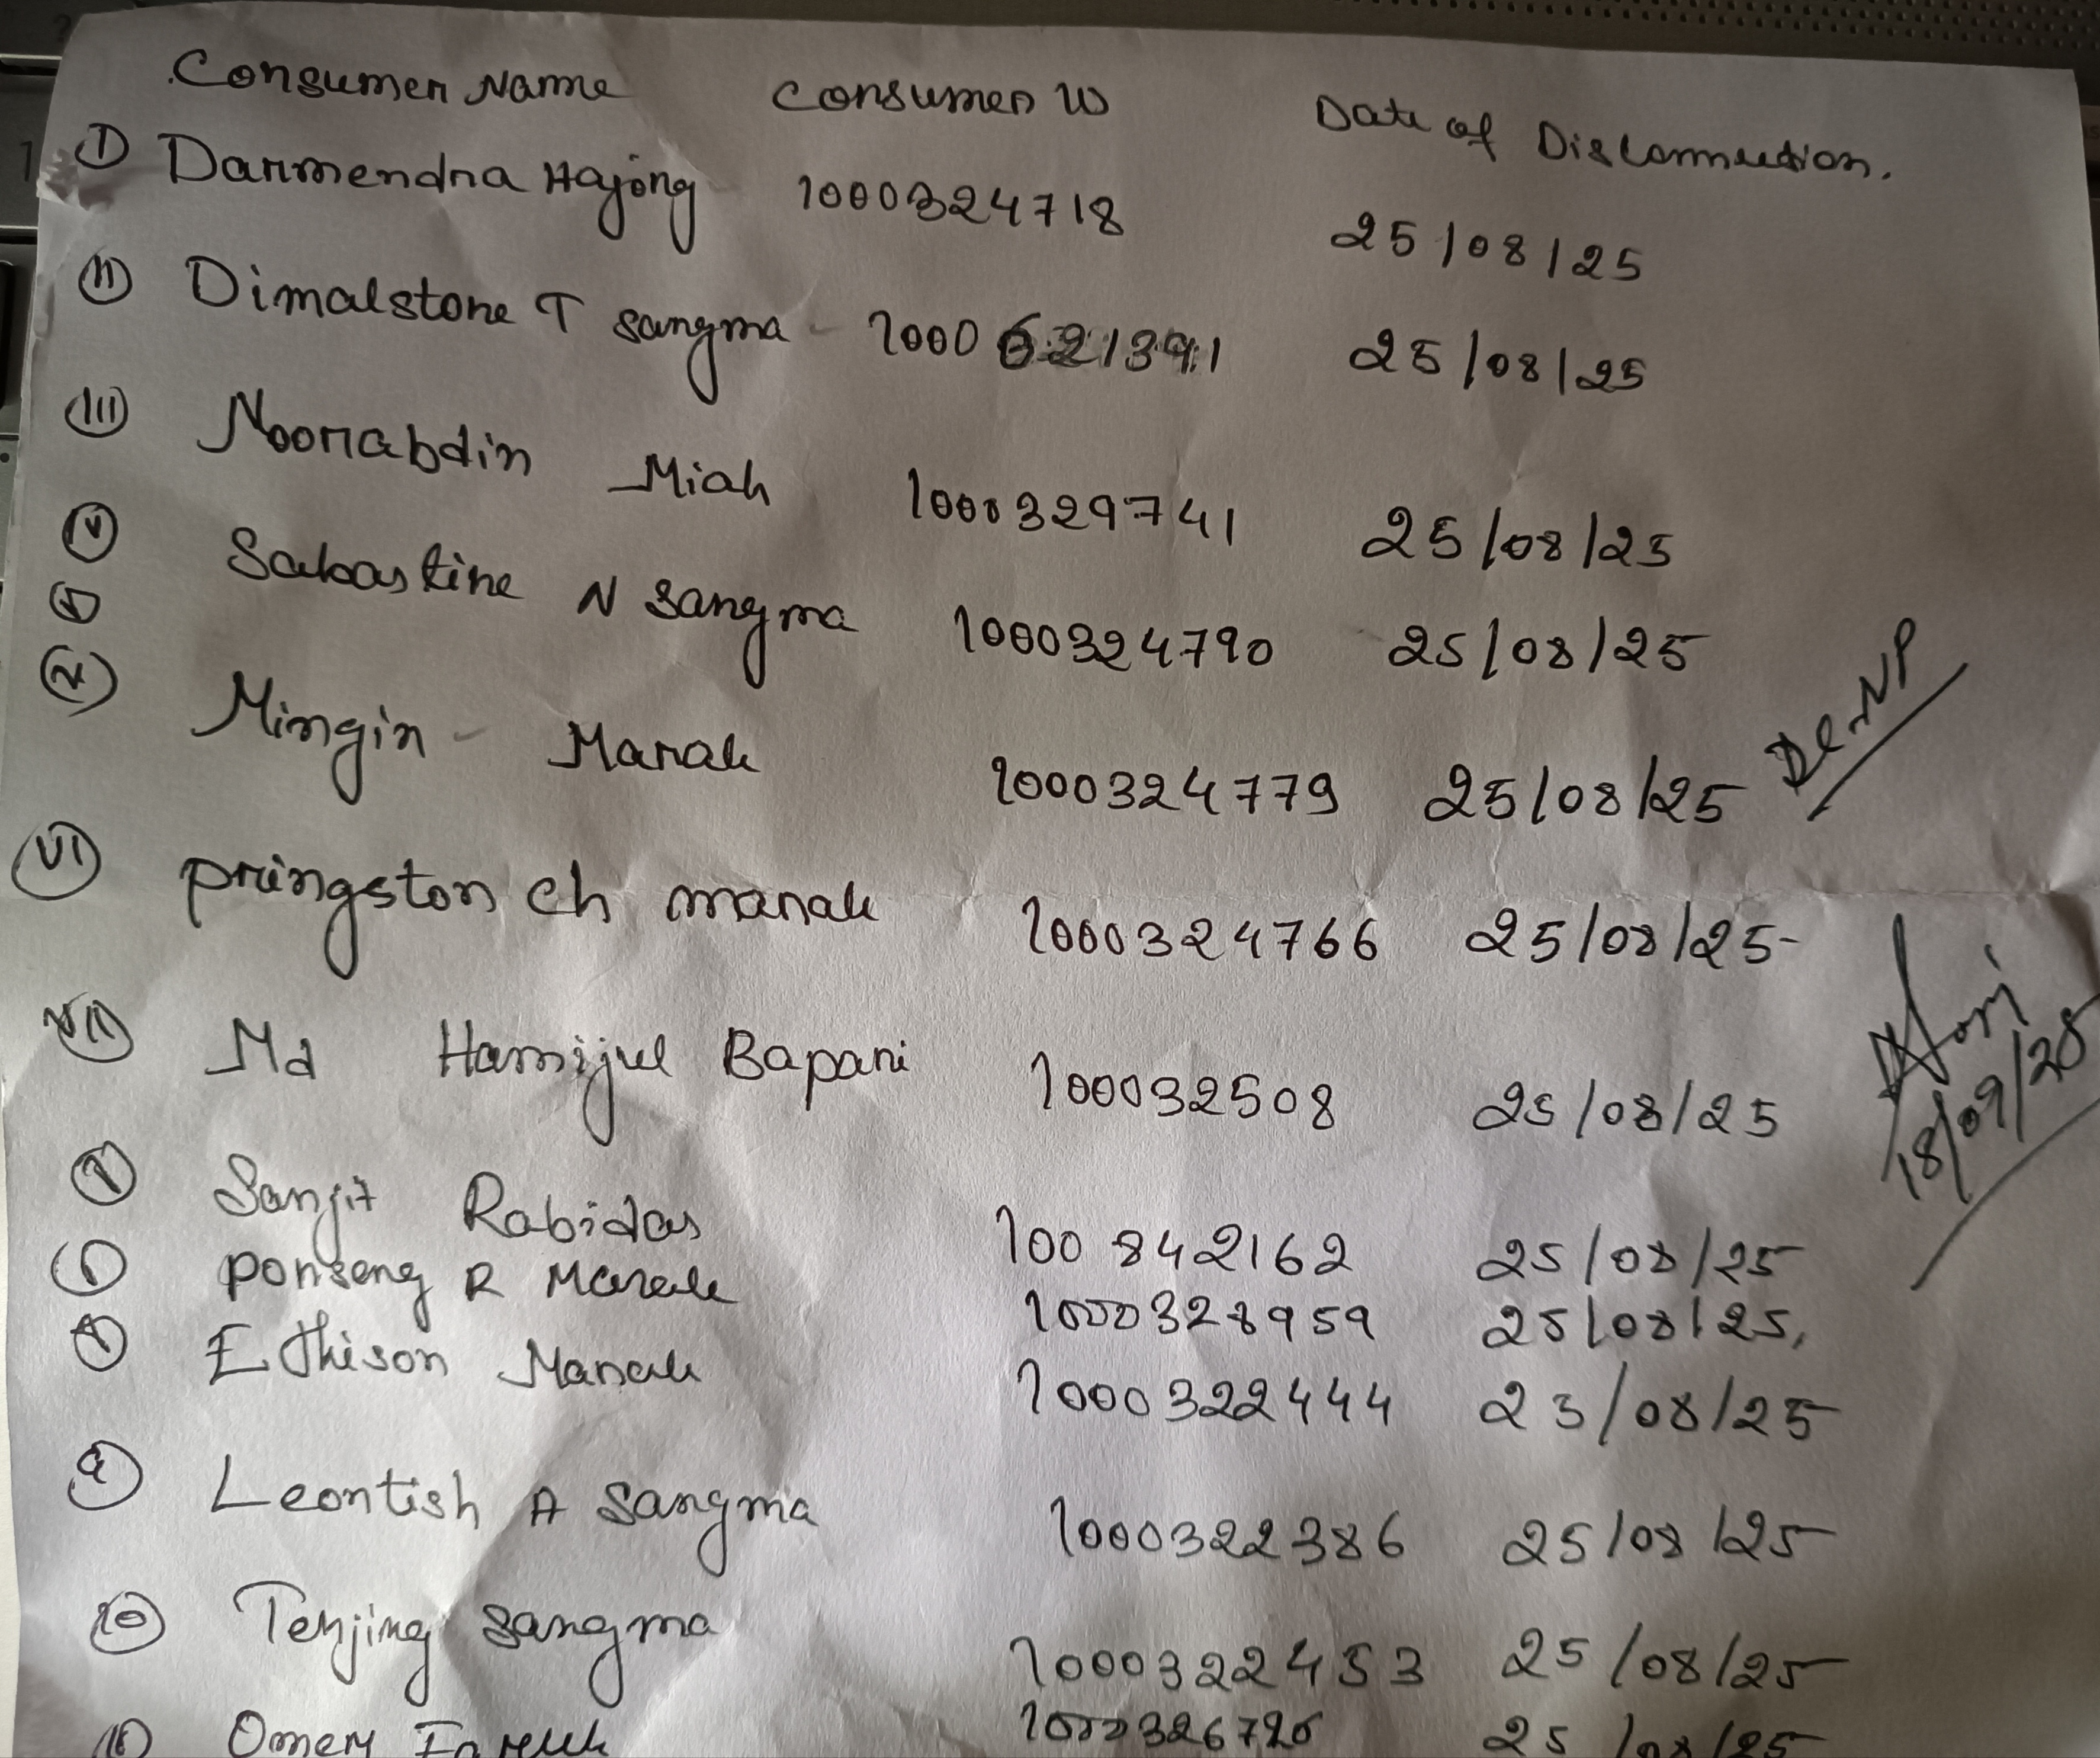 Consumer Name Consumer ID Date of Disconnection.
I Darmendra Hajong 1000324718 25/08/25
II Dimalstone T Sangma - 1000621391 25/08/25
III Noorabdin Miah 1000329741 25/08/25
IV Sabastine N Sangma 1000324790 25/08/25
V Mingin - Marak 1000324779 25/08/25
DC-NP
VI Pringston Ch marak 1000324766 25/08/25
VII Md Hamijul Bapari 100032508 25/08/25
18/09/25
Sanjit Rabidas 100 842162 25/08/25
Ponseng R Marak 1000328959 25/08/25,
Ethison Marak 1000322444 25/08/25
9 Leontish A Sangma 1000322386 25/08/25
10 Tenjing Sangma 1000322453 25/08/25
Omer Faruk 1000326720 25/08/25